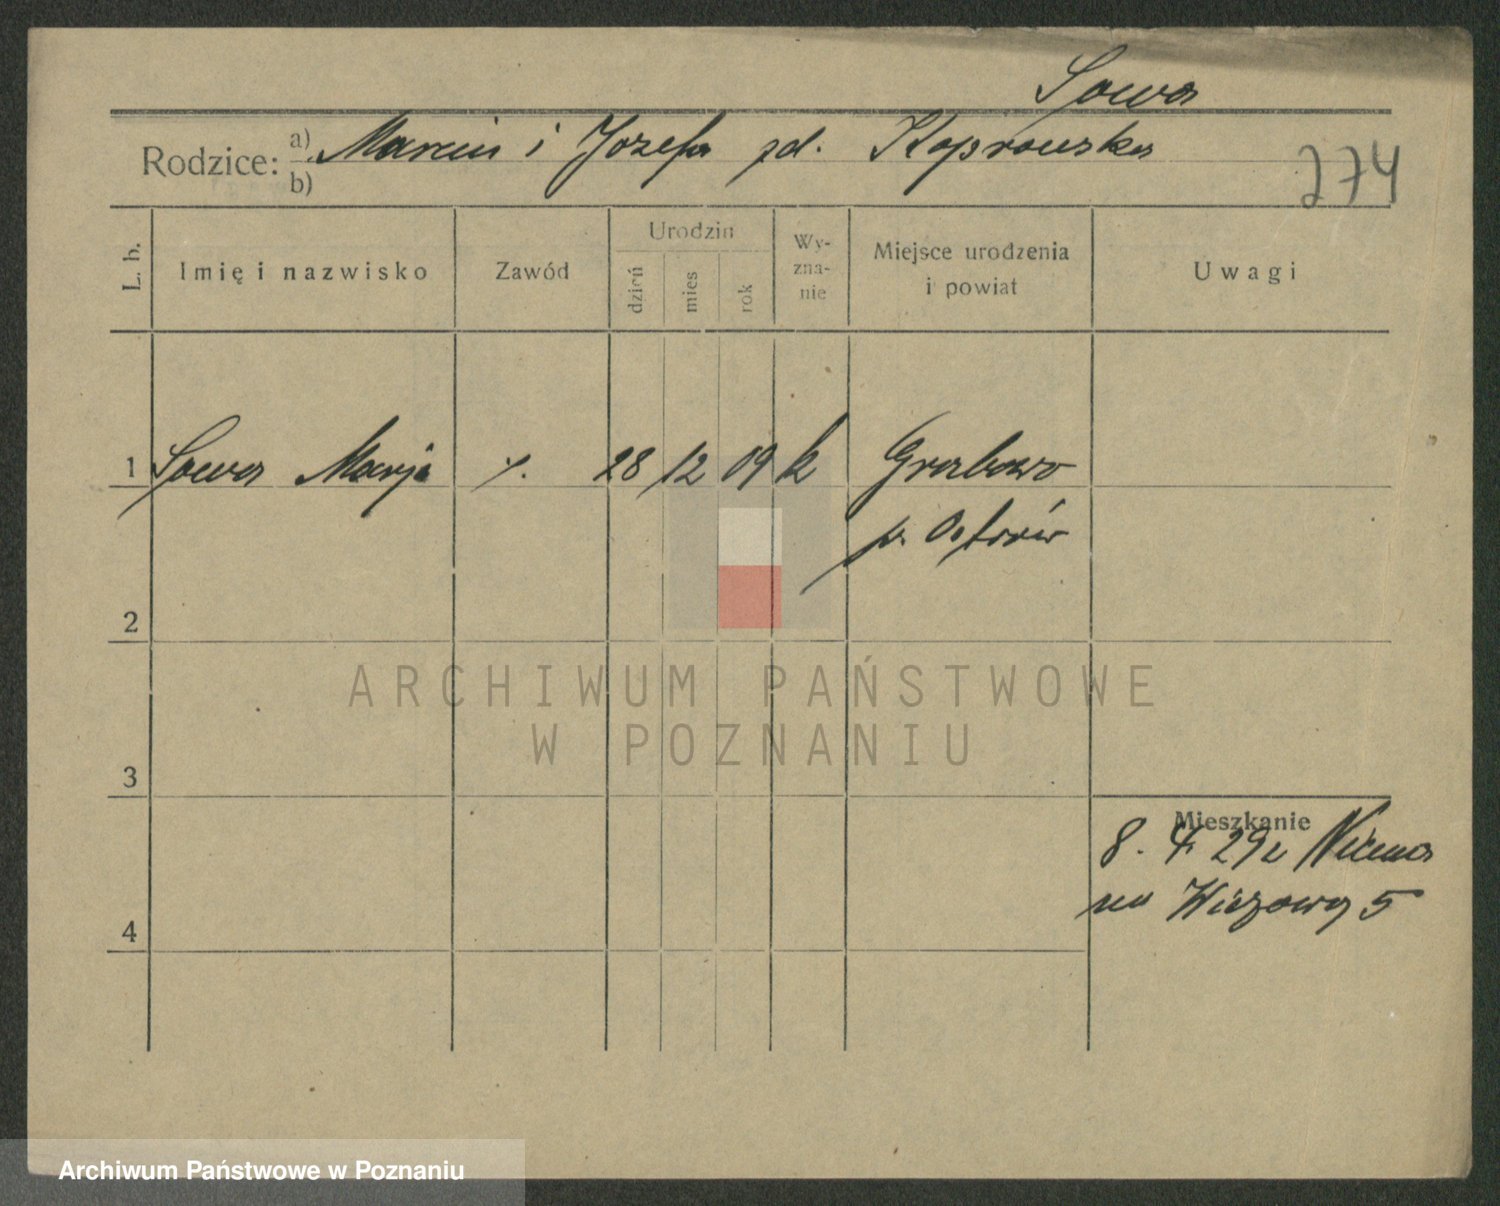 Sowa
Rodzice: a) Marcin i Józefa zd. Koprowska
b)
274
L. b.
Imię i nazwisko
Zawód
Urodzin
dzień
mies
rok
Wy-
zna-
nie
Miejsce urodzenia
i powiat
Uwagi
1 Sowa Marja ./. 28 12 09 k Grabowo
p. Ostrów
2
ARCHIWUM PAŃSTWOWE
W POZNANIU
3
Mieszkanie
8. 4 29 z
4
5
Archiwum Państwowe w Poznaniu